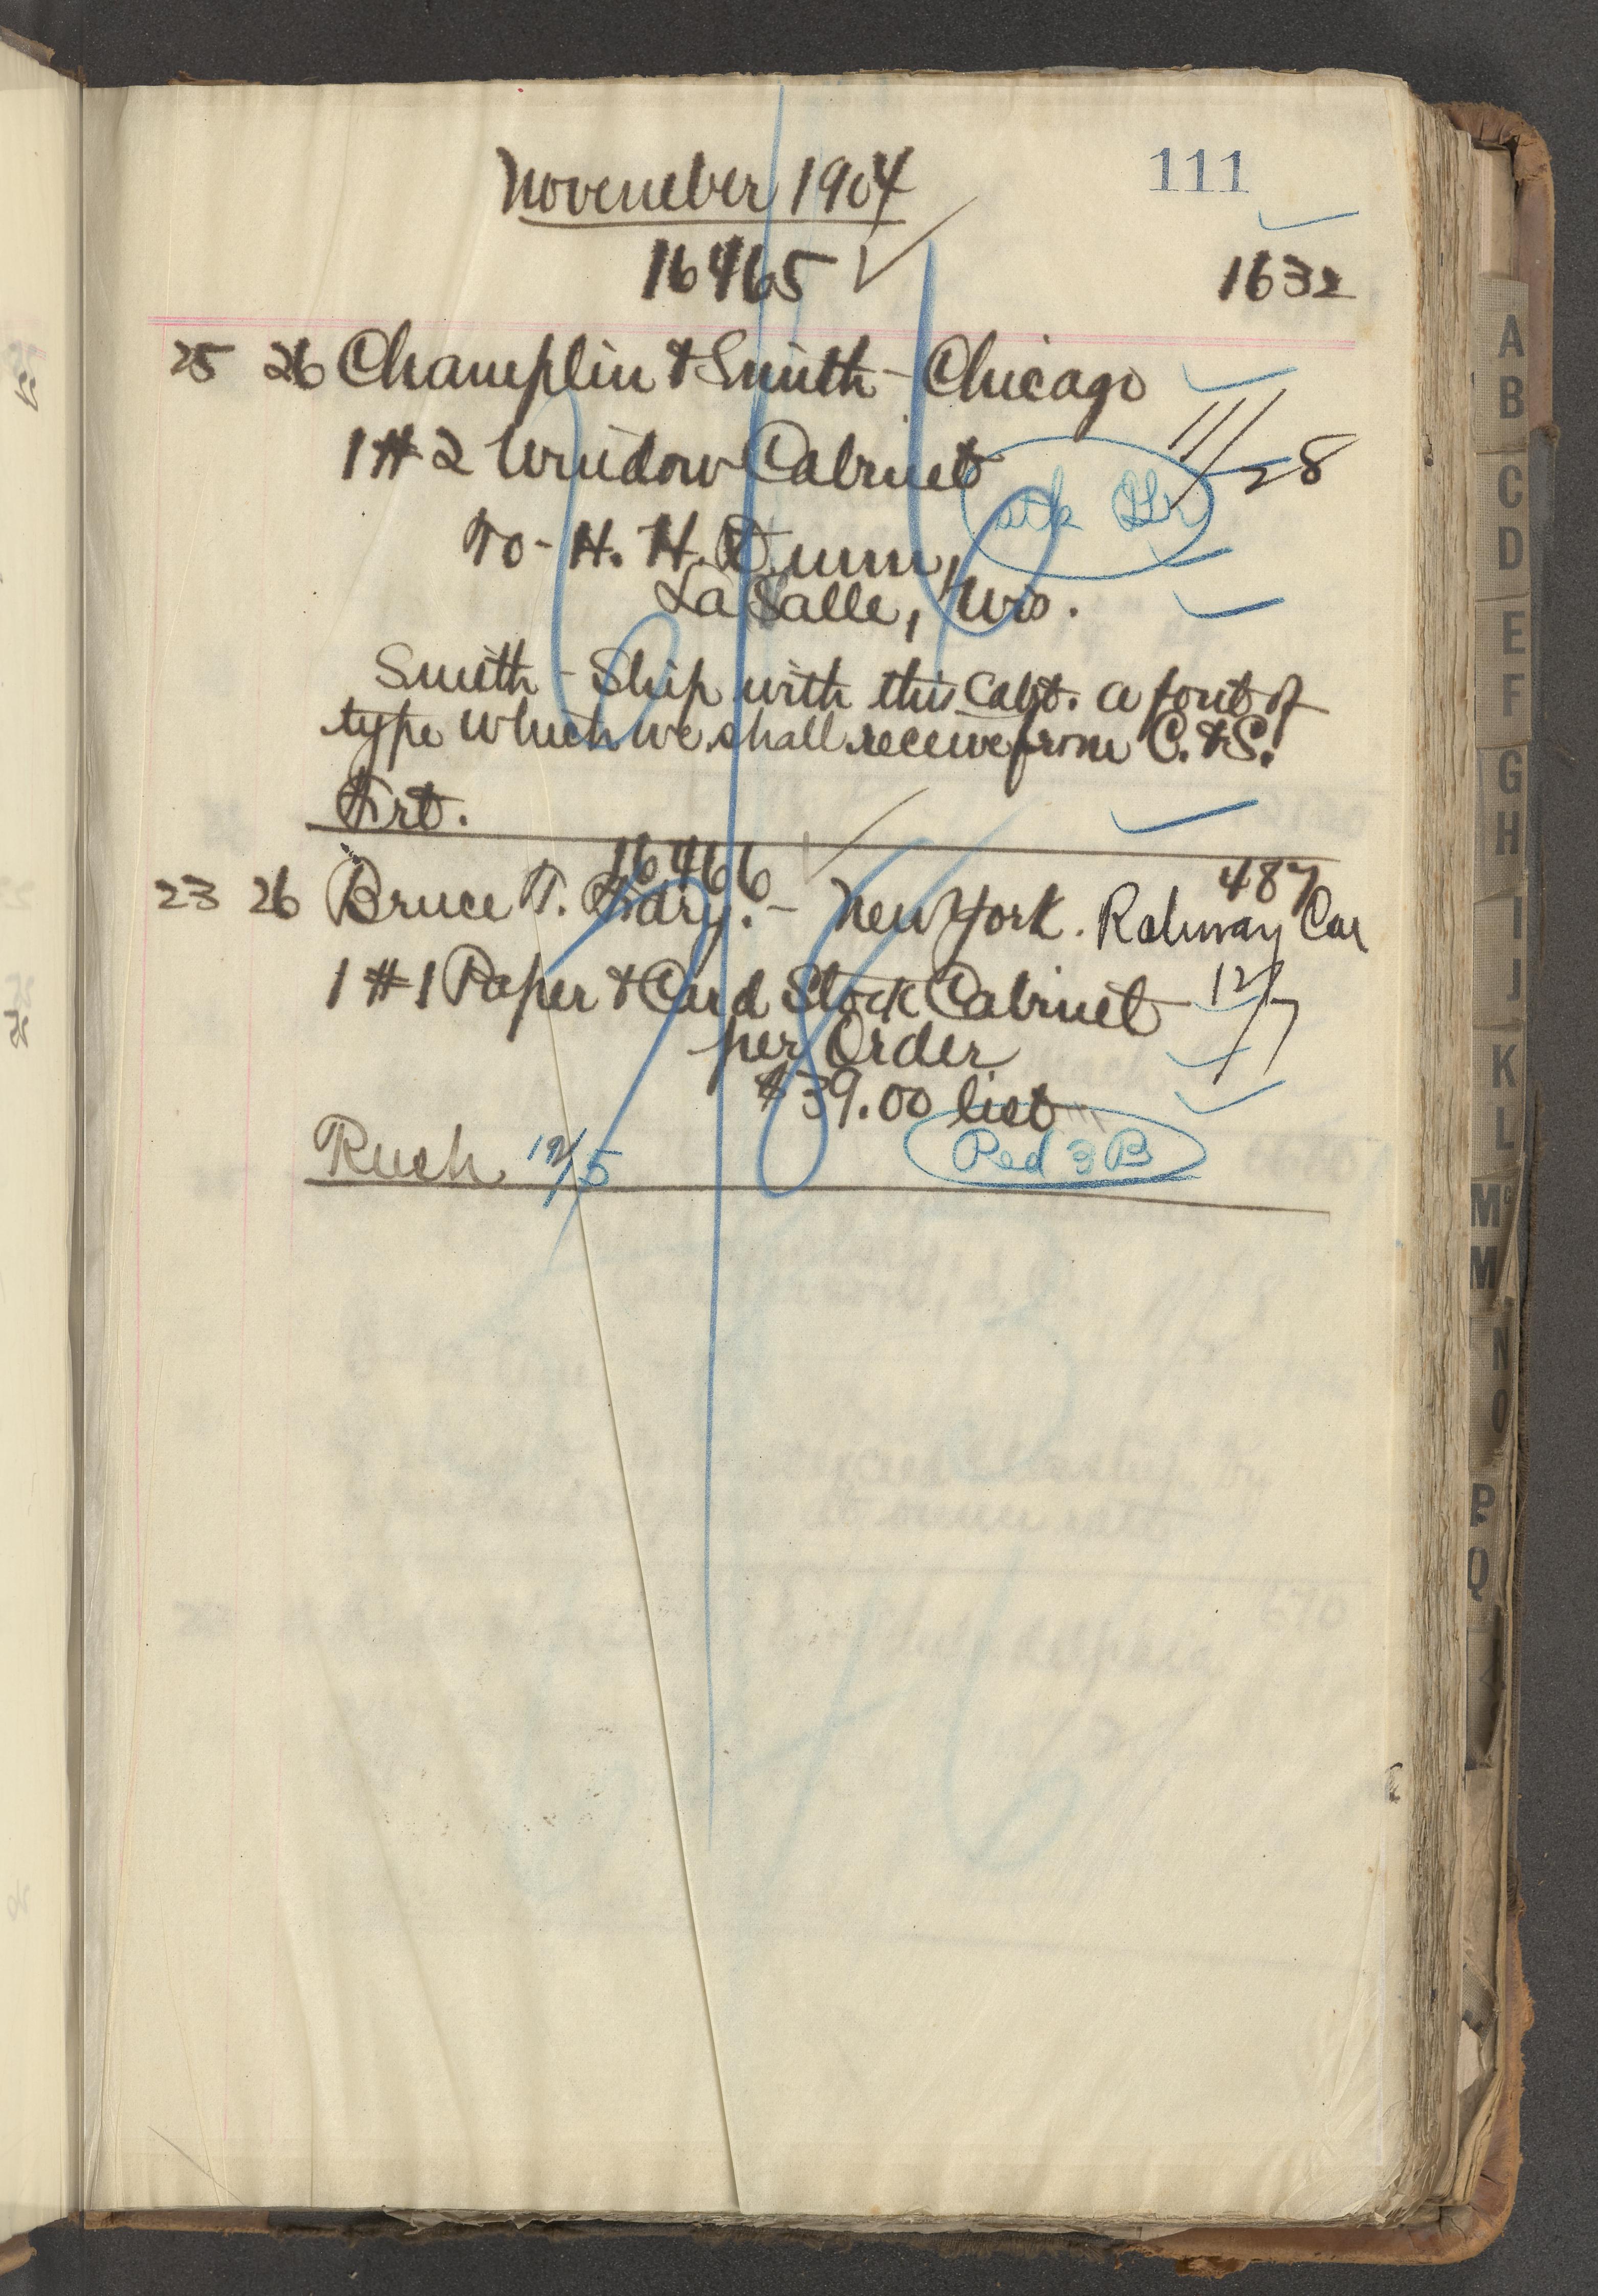 November 1904
111
16465
1632
25 26 Champlin & Smith - Chicago
1 # 2 Window Cabinet
11/28
stk
To - H. H. Dunn,
La Salle, Wis.
Smith - Ship with this Cabt. a font of
type which we shall receive from C. & S.
Frt.
16466
487
23 26 Bruce T. Fdry. - New York. Rahway Car
1 # 1 Paper & Card Stock Cabinet
12/7
per Order
$39.00 list
Rush 12/5
Red 3 B
A
B
C
D
E
F
G
H
I
J
K
L
Mc
M
N
O
P
Q